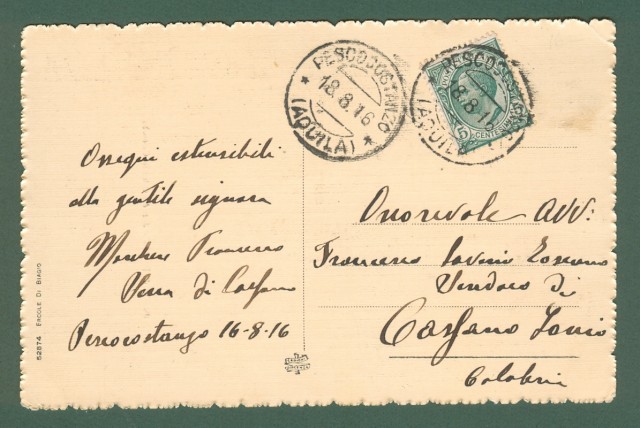 PESCOCOSTANZO
18.8.16
(AQUILA)
PESCOCOSTANZO
18.8.16
(AQUILA)
5
CENTESIMI
Ossequi estensibili
alla gentile signora
Marchese Francesco
di
Pescocostanzo 16-8-16
Onorevole Avv:
Francesco Toscano
Sindaco di
Cassano Ionio
Calabria
52874 ERCOLE DI BIAGIO